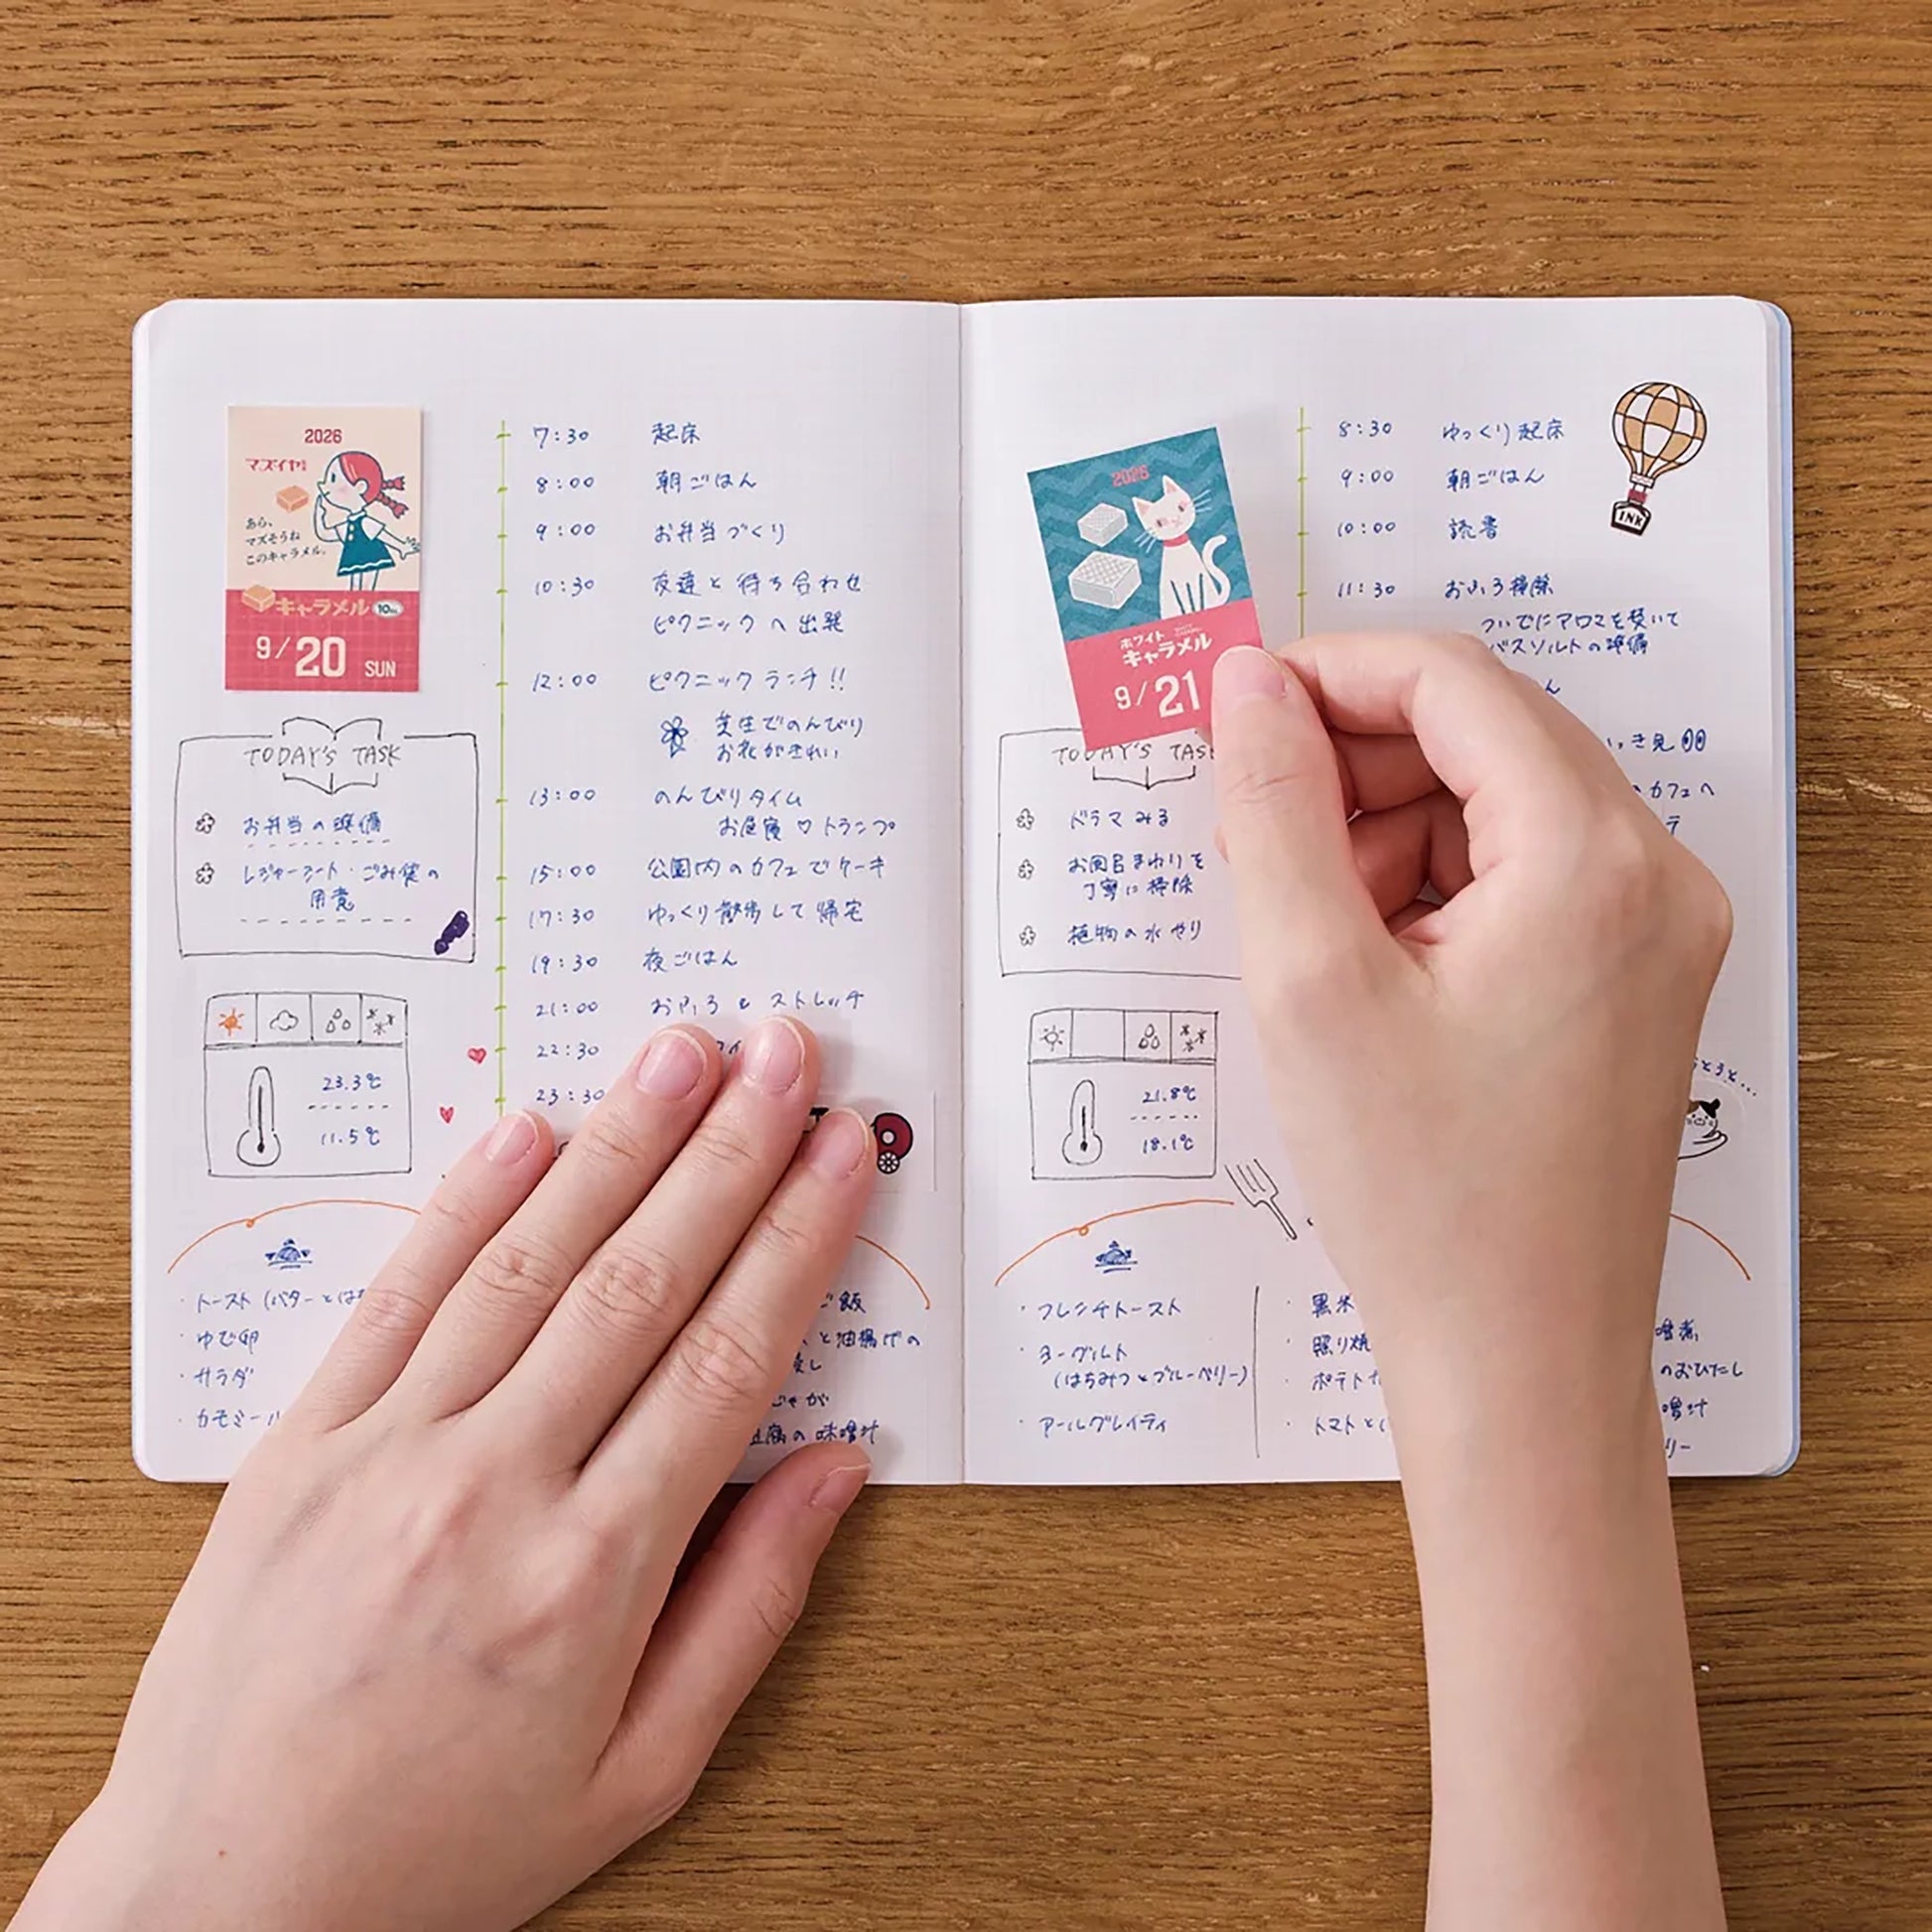 2026
マズイヤ
あら、
マズそうね
このキャラメル。
キャラメル 10
9/20 SUN
7:30 起床
8:00 朝ごはん
9:00 お弁当づくり
10:30 友達と待ち合わせ
ピクニックへ出発
12:00 ピクニックランチ!!
芝生でのんびり
お花がきれい
13:00 のんびりタイム
お昼寝♡トランプ
15:00 公園内のカフェでケーキ
17:30 ゆっくり散歩して帰宅
19:30 夜ごはん
21:00 おふろとストレッチ
22:30
23:30
TODAY'S TASK
お弁当の準備
レジャーシート・ごみ袋の
用意
23.3℃
11.5℃
・トースト(バターとは
・ゆで卵
・サラダ
・カモミール
ご飯
と油揚げの
じゃが
豆腐の味噌汁
2026
ホワイト
キャラメル
9/21
8:30 ゆっくり起床
9:00 朝ごはん
10:00 読書
11:30 おふろ掃除
ついでにアロマを焚いて
バスソルトの準備
ん
き見
カフェへ
テ
INK
TODAY'S TASK
ドラマみる
お風呂まわりを
丁寧に掃除
植物の水やり
21.8℃
18.1℃
・フレンチトースト
・ヨーグルト
(はちみつとブルーベリー)
・アールグレイティ
・黒米
・照り焼
・ポテト
・トマトと
のおひたし
噌汁
リー